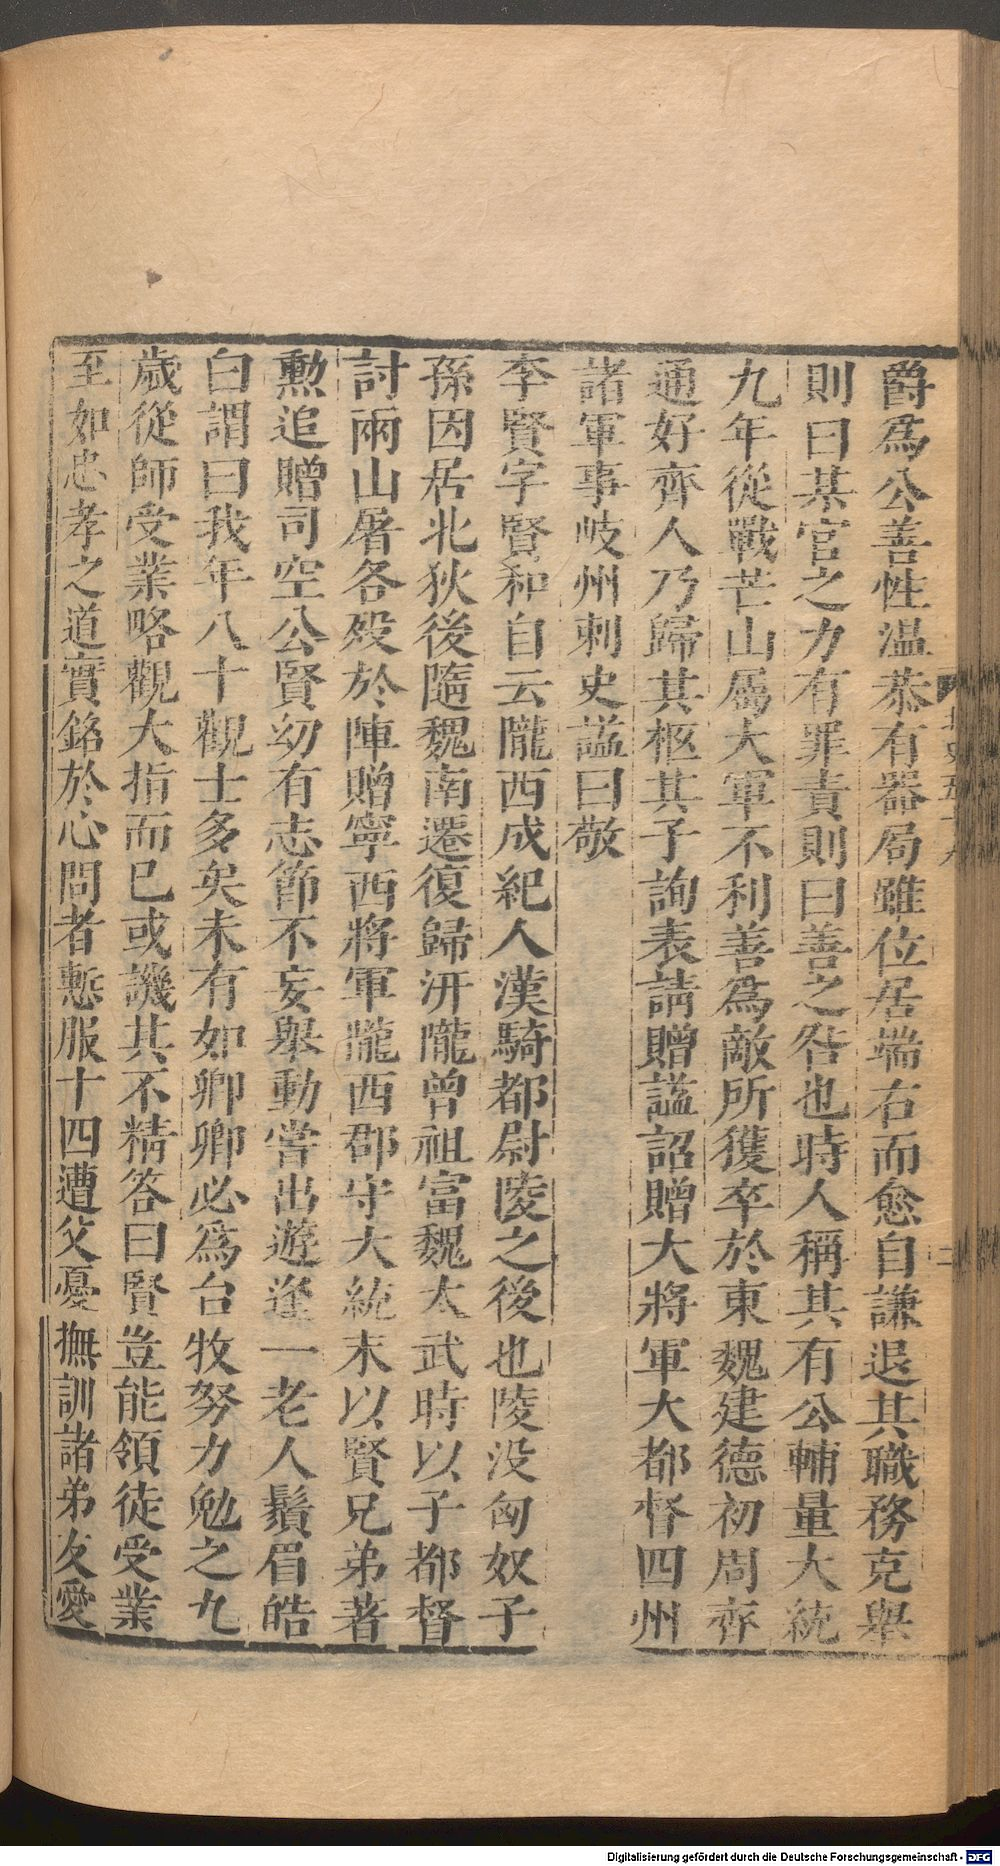 爵爲公善性温恭有器局雖位居端右而愈自謙退其職務克舉
則曰某官之力有罪責則曰善之咎也時人稱其有公輔量大統
九年從戰芒山屬大軍不利善爲敵所獲卒於東魏建德初周齊
通好齊人乃歸其柩其子詢表請贈諡詔贈大將軍大都督四州
諸軍事岐州刺史諡曰敬
李賢字賢和自云隴西成紀人漢騎都尉陵之後也陵没匈奴子
孫因居北狄後隨魏南遷復歸汧隴曾祖富魏太武時以子都督
討兩山屠各殁於陣贈寧西將軍隴西郡守大統末以賢兄弟著
勲追贈司空公賢幼有志節不妄舉動嘗出遊逢一老人鬚眉皓
白謂曰我年八十觀士多矣未有如卿卿必爲台牧努力勉之九
歲從師受業略觀大指而已或譏其不精答曰賢豈能領徒受業
至如忠孝之道實銘於心問者慙服十四遭父憂撫訓諸弟友愛
北史五十九
二
Digitalisierung gefördert durch die Deutsche Forschungsgemeinschaft - DFG